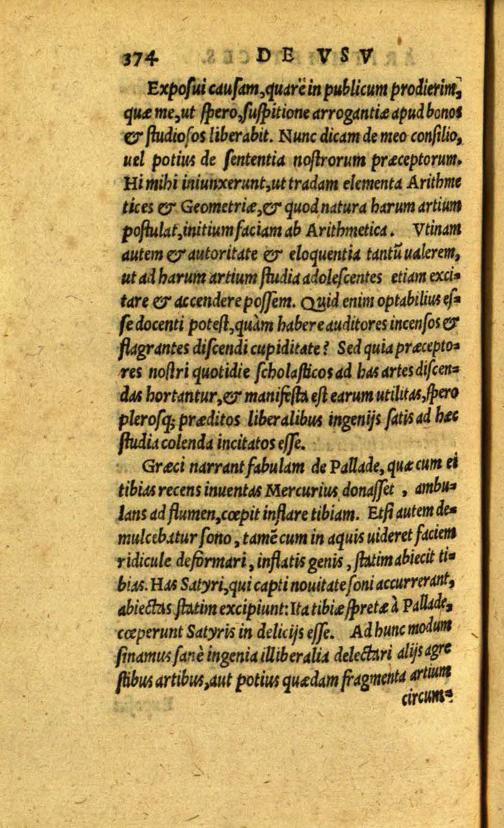 374 DE VSV
Exposui causam, quarē in publicum prodierim,
quæ me, ut spero, suspitione arrogantiæ apud bonos
& studiosos liberabit. Nunc dicam de meo consilio,
uel potius de sententia nostrorum præceptorum.
Hi mihi iniunxerunt, ut tradam elementa Arithme
tices & Geometriæ, & quod natura harum artium
postulat, initium faciam ab Arithmetica. Vtinam
autem & autoritate & eloquentia tantū ualerem,
ut ad harum artium studia adolescentes etiam exci-
tare & accendere possem. Quid enim optabilius es-
se docenti potest, quàm habere auditores incensos &
flagrantes discendi cupiditate? Sed quia præcepto-
res nostri quotidie scholasticos ad has artes discen-
das hortantur, & manifesta est earum utilitas, spero
plerosq; præditos liberalibus ingenijs satis ad hæc
studia colenda incitatos esse.
Græci narrant fabulam de Pallade, quæ cum ei
tibias recens inuentas Mercurius donasset, ambu-
lans ad flumen, cœpit inflare tibiam. Etsi autem de-
mulcebatur sono, tamē cum in aquis uideret faciem
ridicule deformari, inflatis genis, statim abiecit ti-
bias. Has Satyri, qui capti nouitate soni accurrerant,
abiectas statim excipiunt: Ita tibiæ spretæ à Pallade,
cœperunt Satyris in delicijs esse. Ad hunc modum
sinamus sanè ingenia illiberalia delectari alijs agre
stibus artibus, aut potius quædam fragmenta artium
circum-